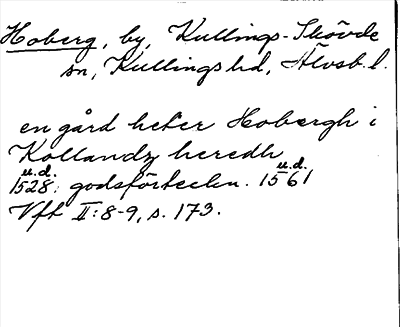 Hoberg, by, Kullings-Skövde
sn, Kullings hd, Älvsb. l.
en gård heter Hobergh i
Kollandz heredh
u.d. u.d.
1528: godsförteckn. 1561
Vft II:8-9, s. 173.